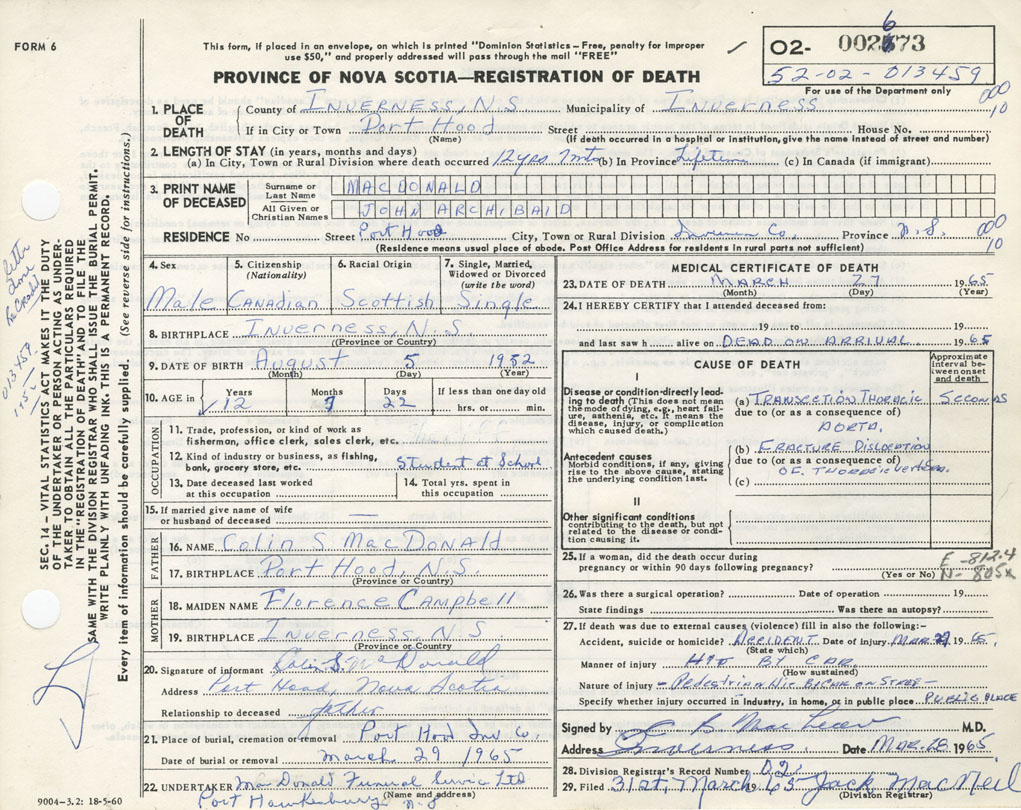 FORM 6
This form, if placed in an envelope, on which is printed "Dominion Statistics – Free, penalty for improper
use $50," and properly addressed will pass through the mail "FREE"
PROVINCE OF NOVA SCOTIA—REGISTRATION OF DEATH
02- 002673
52-02-013459
For use of the Department only
000
10
1. PLACE OF DEATH
County of INVERNESS, N.S Municipality of INVERNESS
If in City or Town Port Hood Street House No.
(Name) (If death occurred in a hospital or institution, give the name instead of street and number)
2. LENGTH OF STAY (in years, months and days)
(a) In City, Town or Rural Division where death occurred 12yrs 7mts (b) In Province Lifetime (c) In Canada (if immigrant)
3. PRINT NAME OF DECEASED
Surname or Last Name MACDONALD
All Given or Christian Names JOHN ARCHIBALD
RESIDENCE No Street Port Hood City, Town or Rural Division Inverness Co. Province N.S.
000
10
(Residence means usual place of abode. Post Office Address for residents in rural parts not sufficient)
4. Sex Male
5. Citizenship (Nationality) CANADIAN
6. Racial Origin Scottish
7. Single, Married, Widowed or Divorced (write the word) Single
8. BIRTHPLACE Inverness, N.S
(Province or Country)
9. DATE OF BIRTH August 5 1952
(Month) (Day) (Year)
10. AGE in Years 12 Months 7 Days 22 If less than one day old hrs. or min.
OCCUPATION
11. Trade, profession, or kind of work as
fisherman, office clerk, sales clerk, etc.
12. Kind of industry or business, as fishing,
bank, grocery store, etc. Student at School
13. Date deceased last worked
at this occupation
14. Total yrs. spent in
this occupation
15. If married give name of wife
or husband of deceased —
FATHER
16. NAME Colin S MacDonald
17. BIRTHPLACE Port Hood, N.S.
(Province or Country)
MOTHER
18. MAIDEN NAME Florence Campbell
19. BIRTHPLACE Inverness, N.S
(Province or Country)
20. Signature of informant Colin S. MacDonald
Address Port Hood, Nova Scotia
Relationship to deceased father
21. Place of burial, cremation or removal Port Hood Inv Co.
Date of burial or removal March 29 1965
22. UNDERTAKER MacDonald Funeral Service Ltd
(Name and address)
Port Hawkesbury N.S
9004-3.2: 18-5-60
MEDICAL CERTIFICATE OF DEATH
23. DATE OF DEATH MARCH 27 1965
(Month) (Day) (Year)
24. I HEREBY CERTIFY that I attended deceased from:
19 to 19
and last saw h alive on DEAD ON ARRIVAL 1965
CAUSE OF DEATH
Approximate interval between onset and death
I
Disease or condition directly leading to death (This does not mean the mode of dying, e.g., heart failure, asthenia, etc. It means the disease, injury, or complication which caused death.)
(a) TRANSECTION THORACIC SECONDS
due to (or as a consequence of)
AORTA.
Antecedent causes
Morbid conditions, if any, giving rise to the above cause, stating the underlying condition last.
(b) FRACTURE DISLOCATION
due to (or as a consequence of)
OF THORACIC VERTEBRA.
(c)
II
Other significant conditions
contributing to the death, but not related to the disease or condition causing it.
25. If a woman, did the death occur during
pregnancy or within 90 days following pregnancy?
(Yes or No)
E -812.4
N- 805x
26. Was there a surgical operation? Date of operation 19
State findings Was there an autopsy?
27. If death was due to external causes (violence) fill in also the following:–
Accident, suicide or homicide? ACCIDENT Date of injury MAR 27 1965
(State which)
Manner of injury HIT BY CAR.
(How sustained)
Nature of injury - Pedestrian Hit By CAR on STREET -
Specify whether injury occurred in industry, in home, or in public place PUBLIC PLACE
Signed by MacLean M.D.
Address Inverness. Date MAR. 28 1965
28. Division Registrar's Record Number 02
29. Filed 31st March 1965 Jack MacNeil
(Division Registrar)
SEC. 14 – VITAL STATISTICS ACT MAKES IT THE DUTY
OF THE UNDERTAKER OR PERSON ACTING AS UNDER-
TAKER TO OBTAIN ALL THE PARTICULARS REQUIRED
IN THE "REGISTRATION OF DEATH" AND TO FILE THE
SAME WITH THE DIVISION REGISTRAR WHO SHALL ISSUE THE BURIAL PERMIT.
WRITE PLAINLY WITH UNFADING INK. THIS IS A PERMANENT RECORD.
Every item of information should be carefully supplied. (See reverse side for instructions.)
013459
1952